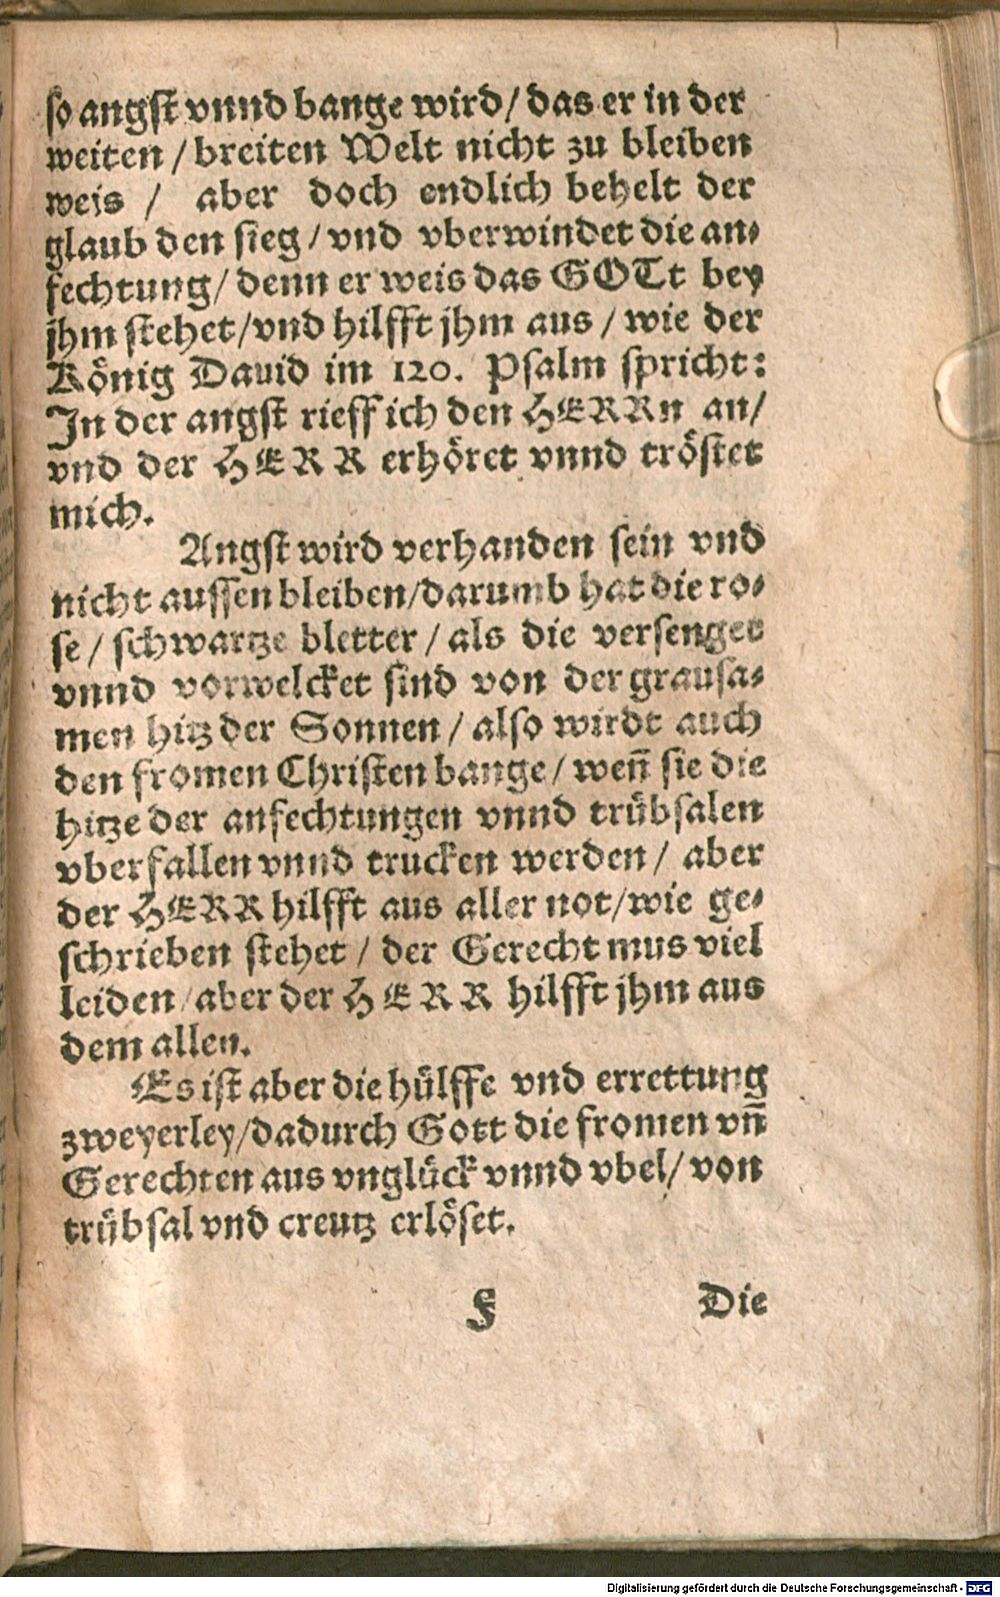 so angst vnnd bange wird/ das er in der
weiten / breiten Welt nicht zu bleiben
weis / aber doch endlich behelt der
glaub den sieg / vnd vberwindet die an-
fechtung/ denn er weis das GOTt bey
jhm stehet/vnd hilfft jhm aus / wie der
König Dauid im 120. Psalm spricht:
In der angst rieff ich den HERRn an/
vnd der HERR erhöret vnnd tröstet
mich.
Angst wird verhanden sein vnd
nicht aussen bleiben/darumb hat die ro-
se / schwartze bletter / als die versenget
vnnd vorwelcket sind von der grausa-
men hitz der Sonnen / also wirdt auch
den fromen Christen bange / weñ sie die
hitze der anfechtungen vnnd trübsalen
vberfallen vnnd trucken werden / aber
der HERR hilfft aus aller not/wie ge-
schrieben stehet / der Gerecht mus viel
leiden/aber der HERR hilfft jhm aus
dem allen.
Es ist aber die hülffe vnd errettung
zweyerley/dadurch Gott die fromen vñ
Gerechten aus vnglück vnnd vbel/ von
trübsal vnd creutz erlöset.
F Die
Digitalisierung gefördert durch die Deutsche Forschungsgemeinschaft - DFG